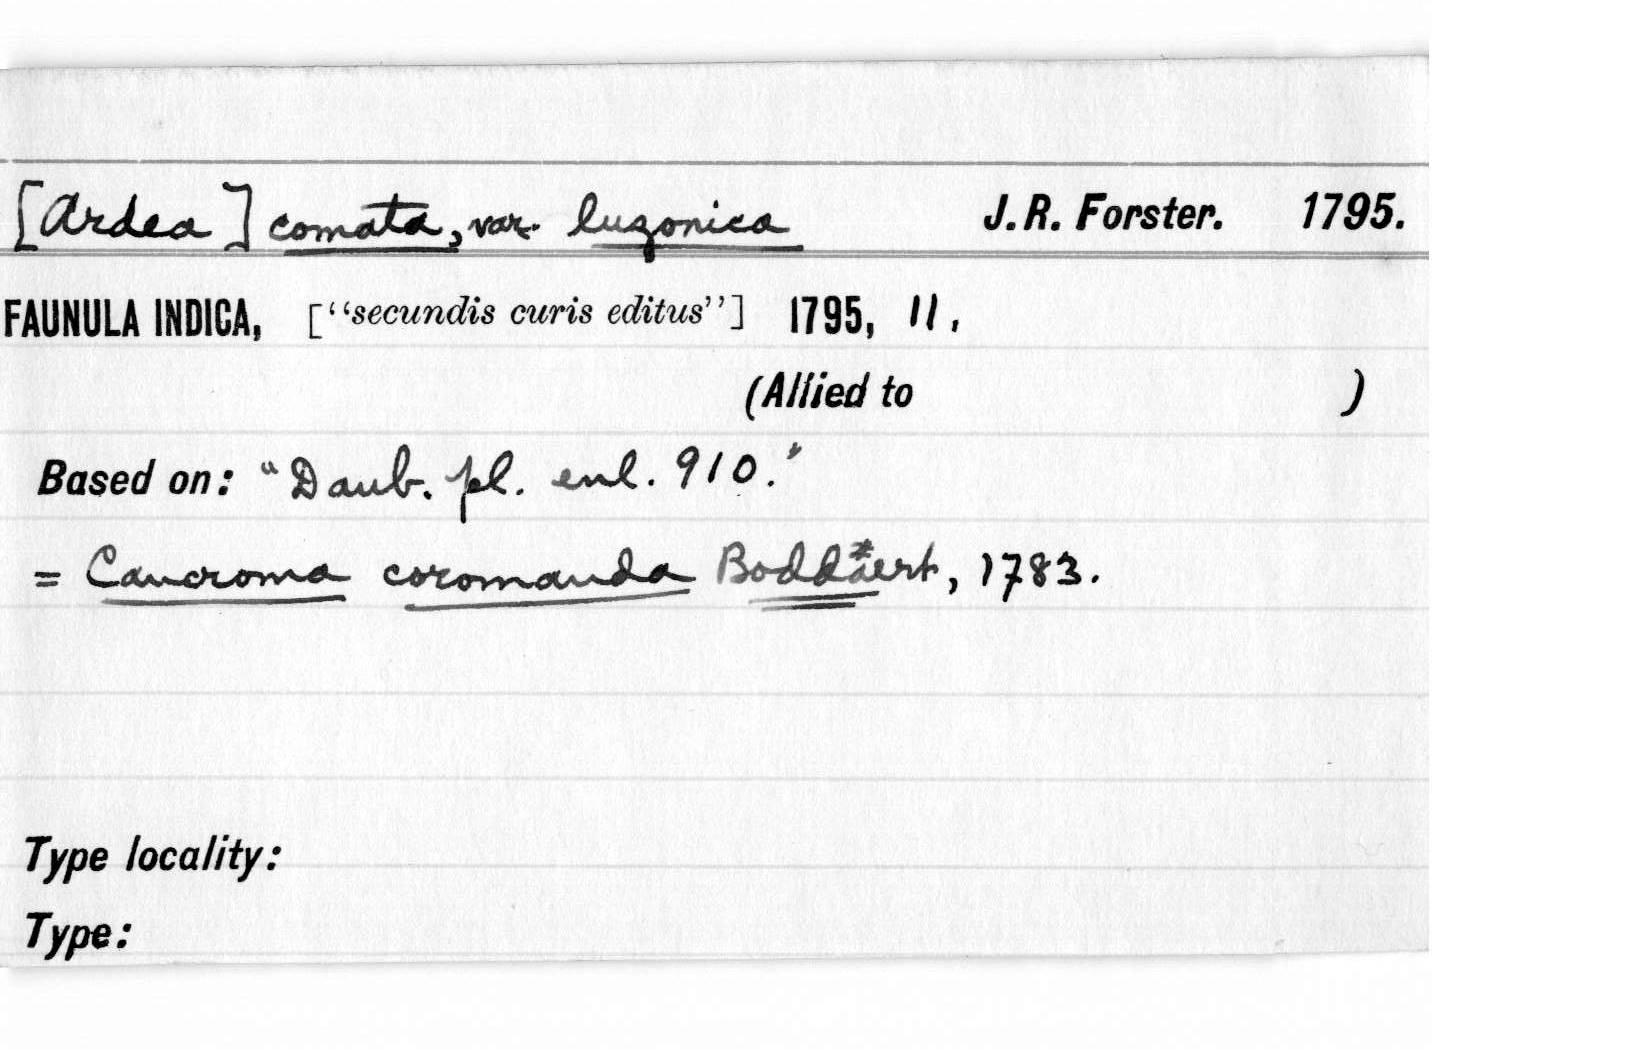 [Ardea] comata, var. luzonica J.R. Forster. 1795.
FAUNULA INDICA, ["secundis curis editus"] 1795, 11.
(Allied to )
Based on: "Daub. pl. enl. 910."
= Cancroma coromanda Boddaert, 1783.
Type locality:
Type: